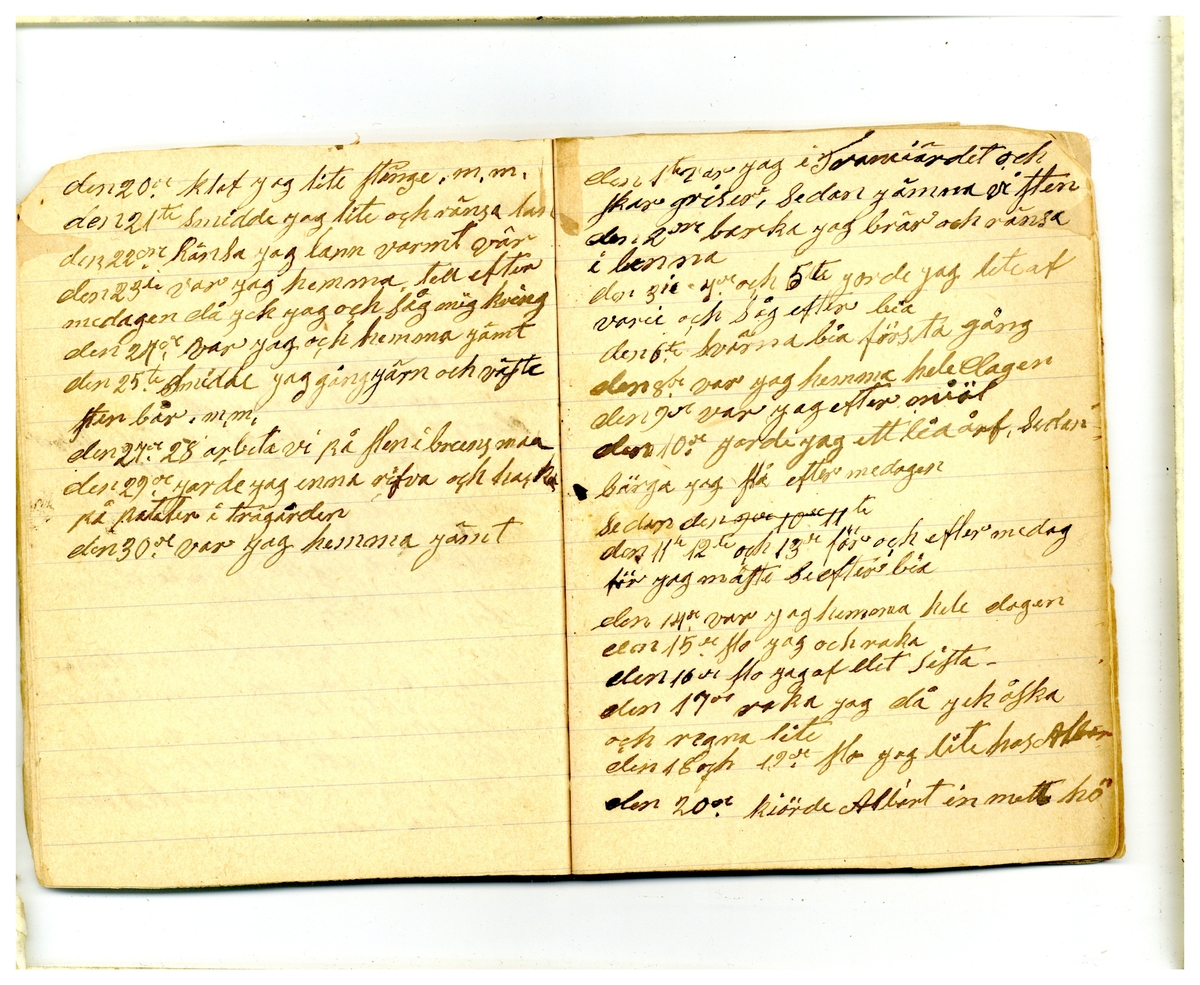 den 20de klof yag lite stänge, m, m,
den 21te smidde yag lite och ränsa lan
den 22ne Ränsa yag lann varmt vär
den 23di var yag hemma, tell efter
medagen då yck yag och såg mig kring
den 24de var yag och hemma yämt
den 25te smidde yag gångyärn och väste
sten bår, m.m,
den 27de 28 arbeta vi på sten i
den 29de yorde yag enna rifva och hacka
på patater i trägården
den 30de var yag hemma yämt
den 1ste var yag i och
skar griser, sedan yämna vi sten
den 2ne barka yag brär och ränsa
i lanna
den 3ie 4de och 5te yorde yag lite af
varie och såg efter bia
den 6te svärna bia första gång
den 8de var yag hemma hele dagen
den 9de var yag efter miöl
den 10de yorde yag ett lia årf, sedan
bärga yag flå efter medagen
sedan den 9de 10de 11te
den 11te 12te och 13de för och efter medag
för yag måste se efter bia
den 14de var yag hemma hele dagen
den 15de slo yag och raka
den 16de slo yag af det sista -
den 17de raka yag då yck åska
och regna lite
den 18 och 19de slo yag lite hos Alber
den 20de kiörde Albert in mett hö